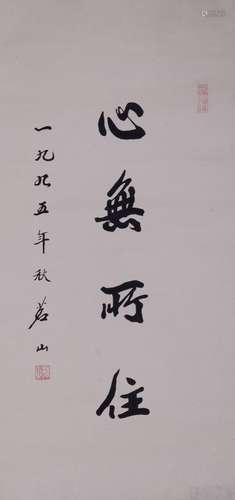 心無所住
一九九五年秋茗山